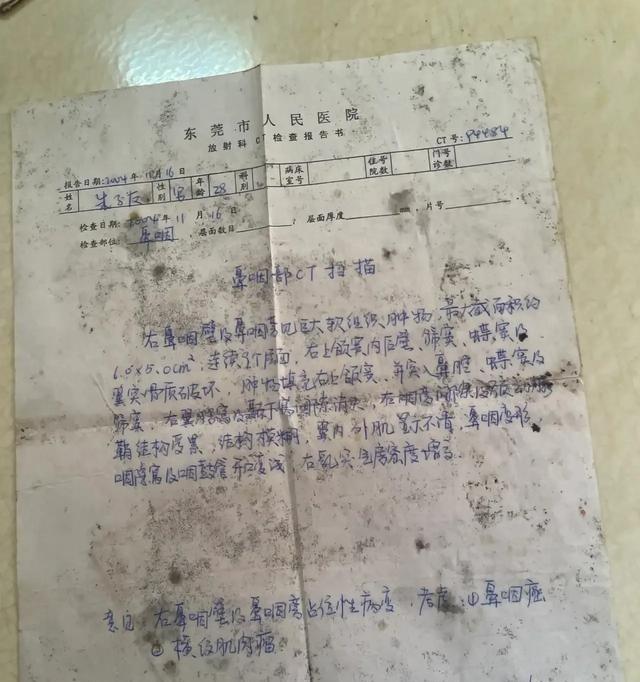 东莞市人民医院
放射科CT检查报告书
CT号:P4484
报告日期:2004年11月16日
姓名 朱 友 性别 男 年龄 28 科别 病床室号 住院号数 门诊号数
检查日期:2004年11月16日
检查部位:鼻咽 层面数目 层面厚度 mm,片号
鼻咽部CT扫描
右鼻咽壁及鼻咽旁见巨大软组织肿物,最大截面积约
6.0×5.0cm²,连续 个层面,右上颌窦内后壁、筛窦、蝶窦及
翼突骨质破坏.肿物填充右上颌窦、并突入鼻腔、蝶窦及
筛窦,右翼腭窝及颞下窝间隙消失,右咽旁间隙及颈动脉
鞘结构受累,结构模糊,翼内外肌显示不清,鼻咽变形,
咽隐窝及咽鼓管开口变浅,右乳突气房密度增高.
意见:右鼻咽壁及鼻咽旁占位性病变,考虑:①鼻咽癌
② 横纹肌肉瘤